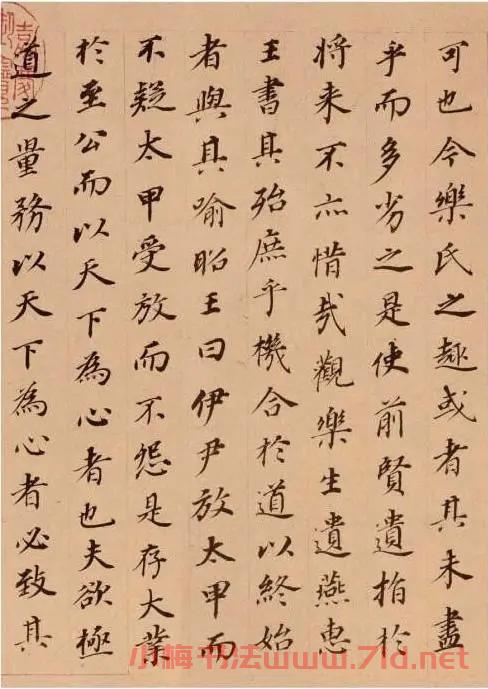 可也今樂氏之趣或者其未盡
乎而多劣之是使前賢遺指於
将来不亦惜哉觀樂生遺燕惠
王書其殆庶乎機合於道以終始
者與其喻昭王曰伊尹放太甲而
不疑太甲受放而不怨是存大業
於至公而以天下為心者也夫欲極
道之量務以天下為心者必致其
小梅书法www.71d.net